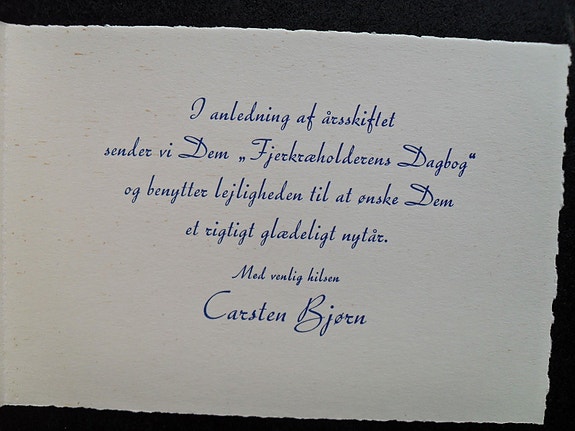 I anledning af årsskiftet
sender vi Dem „Fjerkræholderens Dagbog“
og benytter lejligheden til at ønske Dem
et rigtigt glædeligt nytår.
Med venlig hilsen
Carsten Bjørn